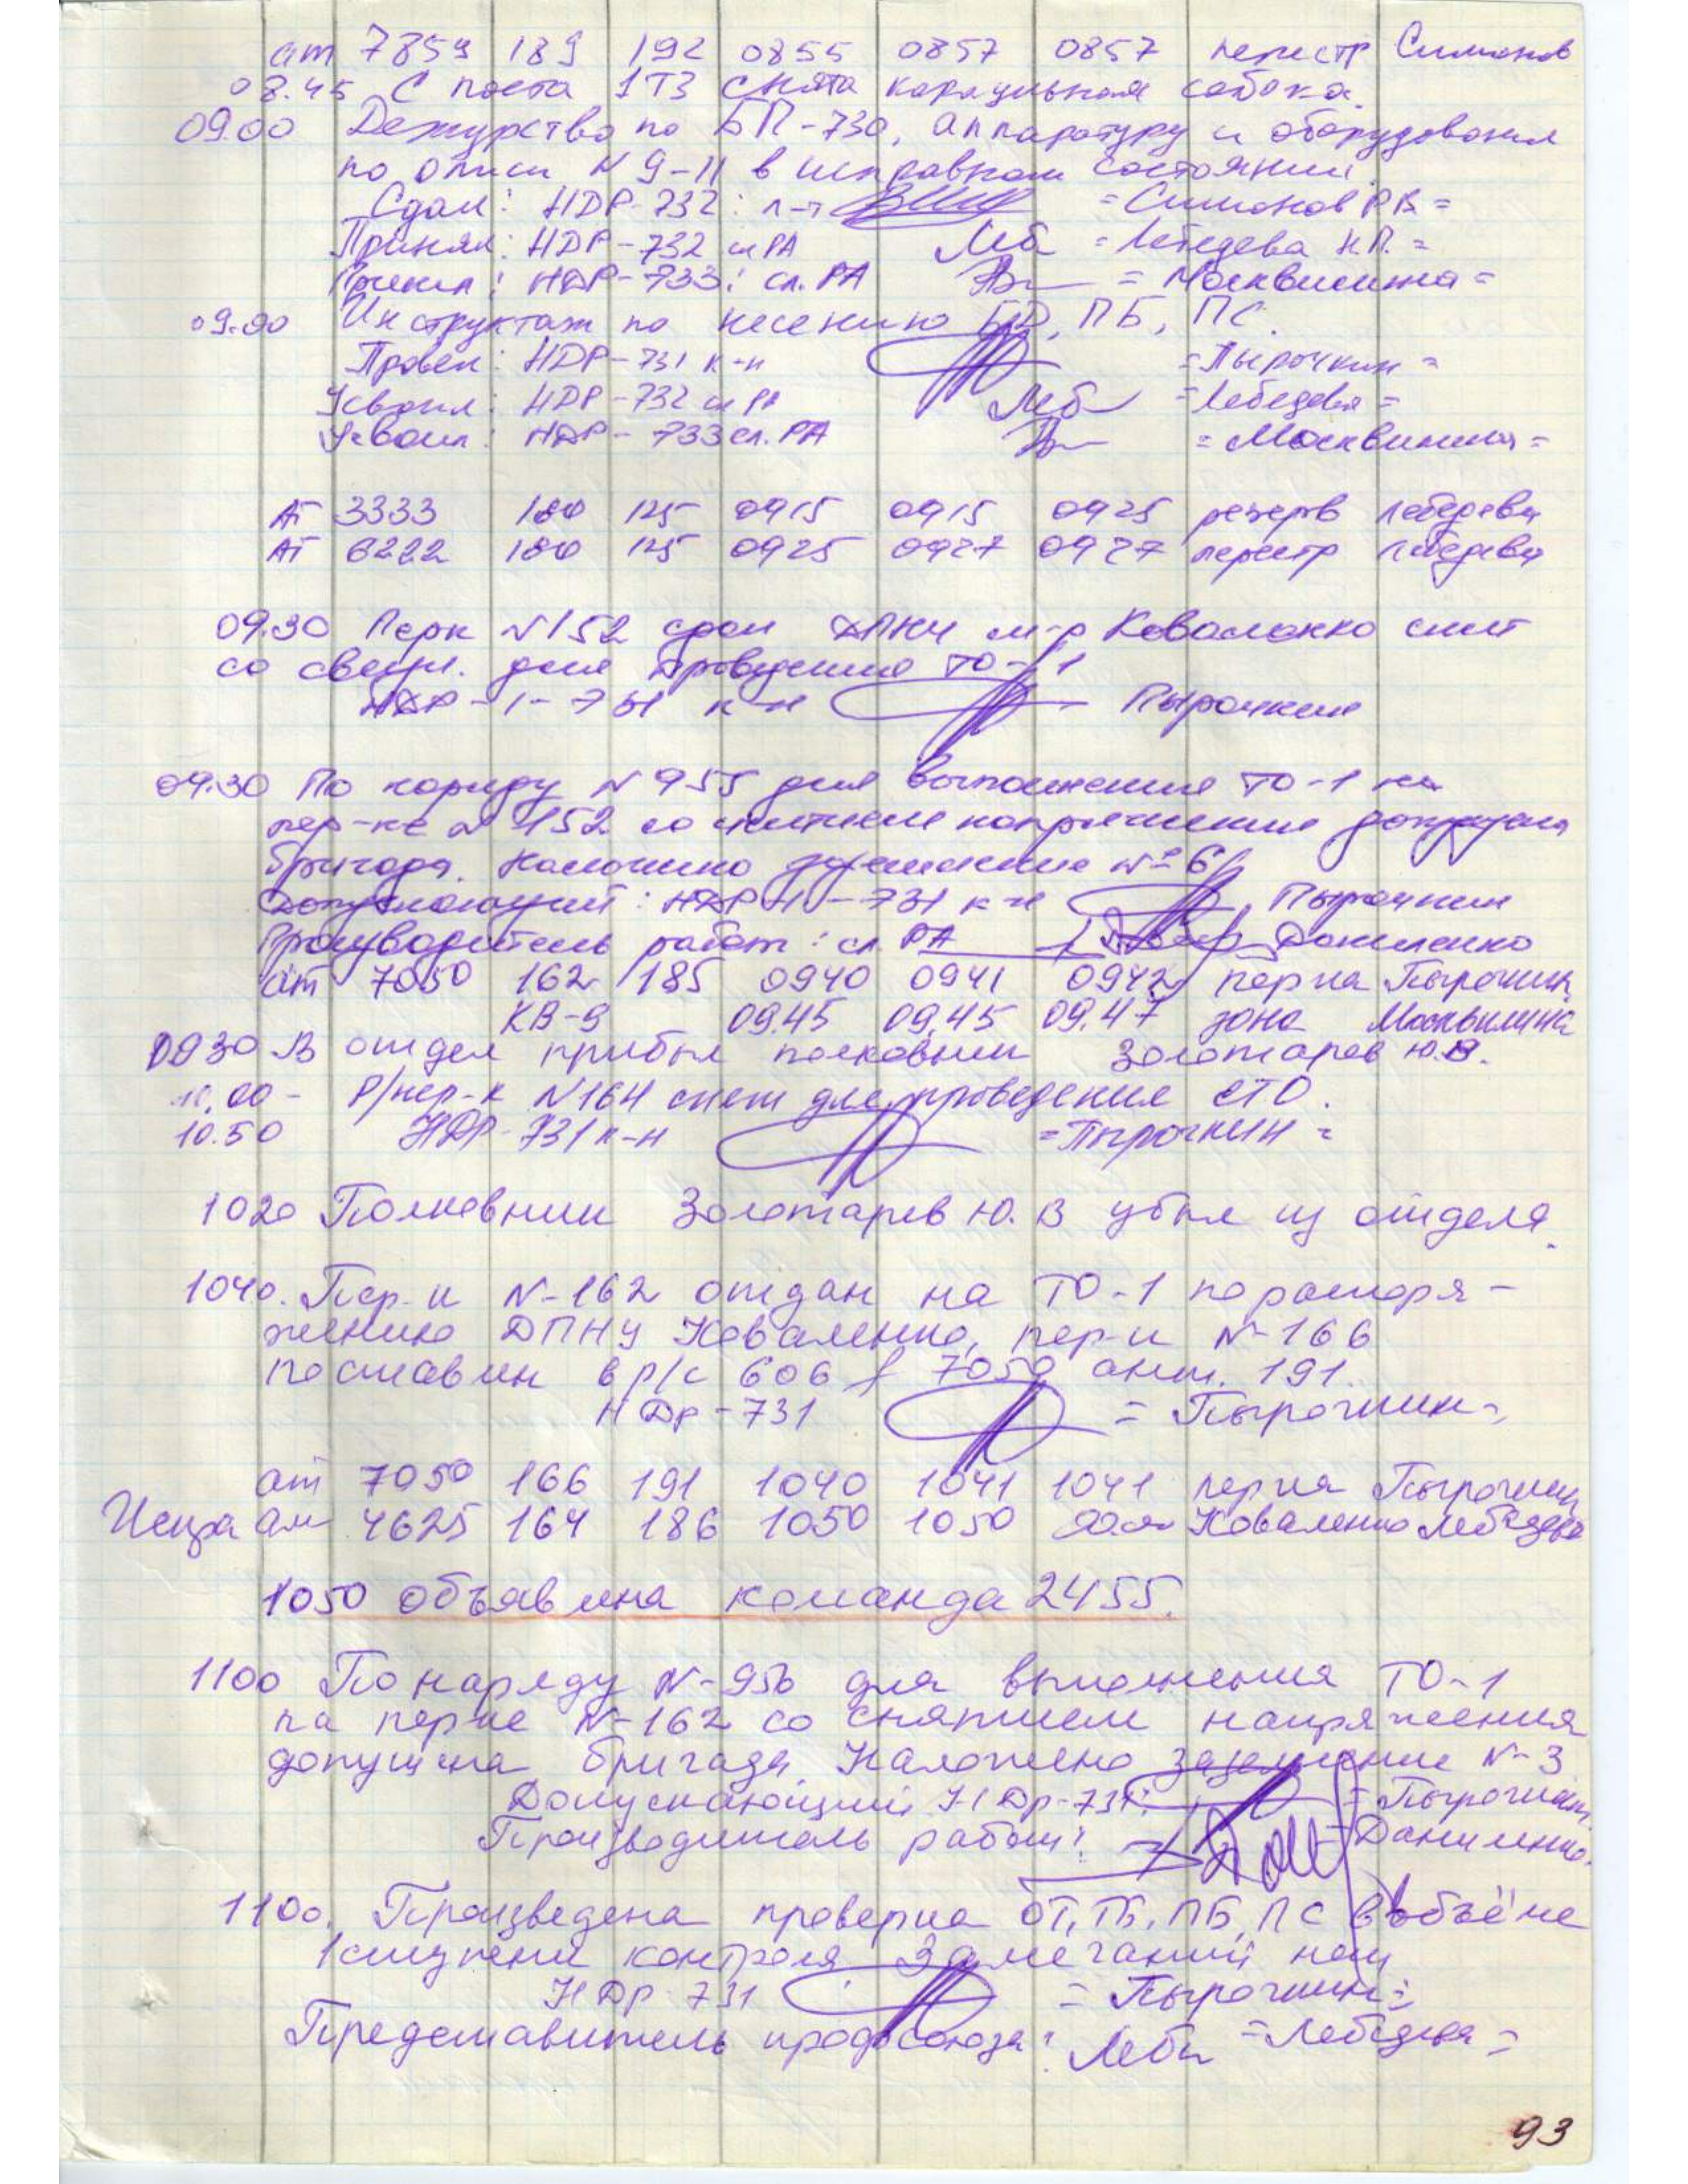 ат 7859 189 192 0855 0857 0857 перестр Симонов
08.45 С поста 1ТЗ снята караульная собака.
09.00 Дежурство по БП-730, аппаратуру и оборудования
по описи N 9-11 в исправном состоянии.
Сдал: НДР-732: л-т = Симонов Р.В =
Принял: НДР-732 сл РА Леб = Лебедева Н.П. =
Принял: НДР-733: сл. РА = Москвилина =
09.00 Инструктаж по несению БД, ПБ, ПС.
Провел: НДР-731 к-н = Пырочкин =
Усвоил: НДР-732 сл РА Леб = Лебедева =
Усвоил: НДР-733 сл. РА = Москвилина =
АТ 3333 180 125 0915 0915 0925 резерв Лебедева
АТ 6222 180 125 0925 0927 0927 перестр Лебедева
09.30 Перк N152 сдан ДПНУ м-р Коваленко снят
со связи. для проведения ТО-1
НДР-1-731 к-н Пырочкин
09.30 По наряду N 955 для выполнения ТО-1 на
пер-ке N 152 со снятием напряжение допущена
бригада. Наложено заземление №6
Допускающий: НДР-1-731 к-н Пырочкин
Производитель работ: сл. РА Даниленко
ат 7050 162 185 0940 0941 0942 перка Пырочкин
КВ-9 09.45 09.45 09.47 зона Москвилина
0930 В отдел прибыл полковник Золотарев Ю.В.
10.00 - Р/пер-к N164 снят для проведения ЕТО.
10.50 НДР-731 к-н = Пырочкин =
1020 Полковник Золотарев Ю.В убыл из отдела.
1040. Пер-к N-162 отдан на ТО-1 по распоря-
жению ДПНУ Коваленко, пер-к N-166
поставлен в р/с 606 f 7050 ант. 191.
НДр-731 = Пырочкин =
ат 7050 166 191 1040 1041 1041 перка Пырочкин
ат 4625 164 186 1050 1050 Коваленко Лебедева
1050 объявлена команда 2455.
1100 По наряду N-956 для выполнения ТО-1
на перке N-162 со снятием напряжения
допущена бригада. Наложено заземление N-3
Допускающий НДр-731: = Пырочкин
Производитель работ: = Даниленко.
1100. Произведена проверка ОТ, ТБ, ПБ, ПС в объёме
1 ступени контроля Замечаний нет
НДр-731 = Пырочкин =
Представитель профсоюза: Леб = Лебедева =
93